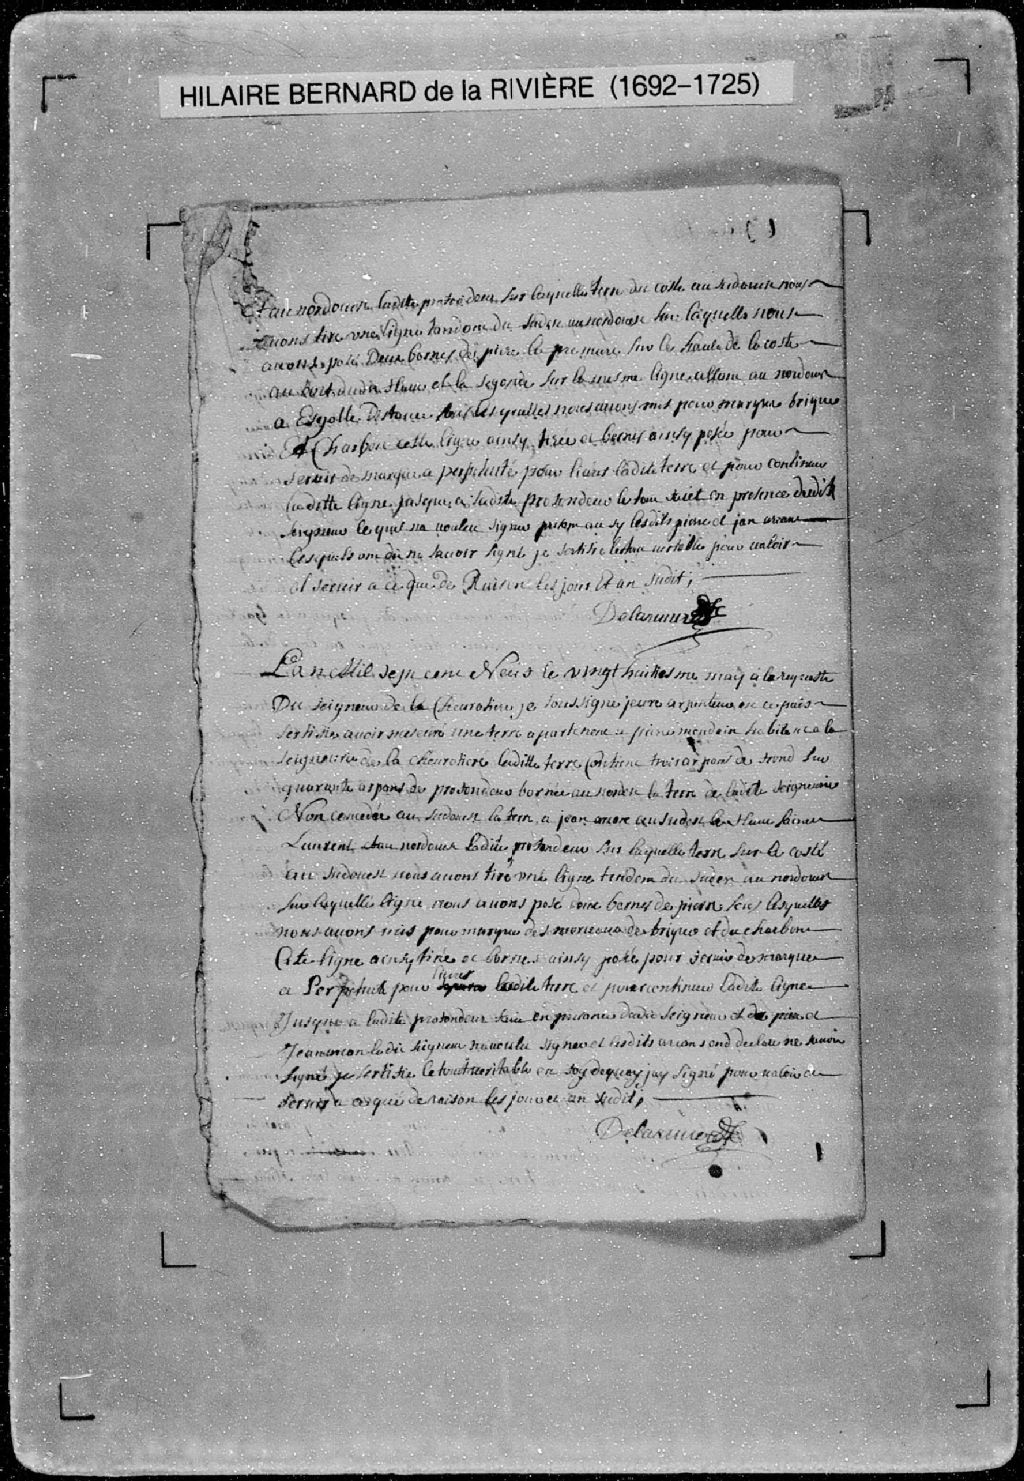 HILAIRE BERNARD de la RIVIÈRE (1692–1725)
au nordouest ladite profondeur sur laquelle terre du coste au sudouest nous
avons tiré une ligne tendant du sudest au nordouest sur laquelle nous
avons posé Deux bornes de piere la premiere sur le haut de la coste
au bord dudit fleuve et la segonde sur la mesme ligne allant au nordouest
a distance lesquelles nous avons mis pour marque brique
Et Charbon cette ligne ainsy tirée et bornes ainsy posée pour
servir de marque a perpetuité pour ladite terre et pour continuer
laditte ligne jusque a ladite profondeur le tout fait en presence dudit
seigneur lequel na voulu signer lesdits pierre et jan
lesquels ont dit ne savoir signé je sertifie le tout veritable pour valoir
et servir a ce que de Raison les jour et an sudit;
Delariviere
Lan Mil sept cent Neuf le vingt huitiesme may a la requeste
Du seigneur de la Chevrotiere je soussigné juré arpenteur en ce païs
sertifie avoir mesuré une terre apartenant a piere habitant a la
seigneurie de la Chevrotiere laditte terre Contient trois arpans de frond sur
quarante arpans de profondeur bornée au nordest la terre de ladite seigneurie
Non concedée au sudouest la terre a jean au sudest le fleuve saint
Laurent et au nordouest ladite profondeur sur laquelle terre sur le costé
du sudouest nous avons tiré une ligne tendant du sudest au nordouest
sur laquelle ligne nous avons posé deux bornes de piere sous lesquelles
nous avons mis pour marque des morceaux de brique et du charbon
Cette ligne ainsy tirée et bornes ainsy posée pour servir de marque
a Perpetuité pour ladite terre et pour continuer ladite ligne
Jusque a ladite profondeur fait en presence dudit seigneur et de piere et
Jean ledit seigneur na voulu signer et lesdits ont declaré ne savoir
signé je sertifie le tout veritable en foy de quoy jay signé pour valoir et
servir a ce que de raison les jour et an sudit;
Delariviere